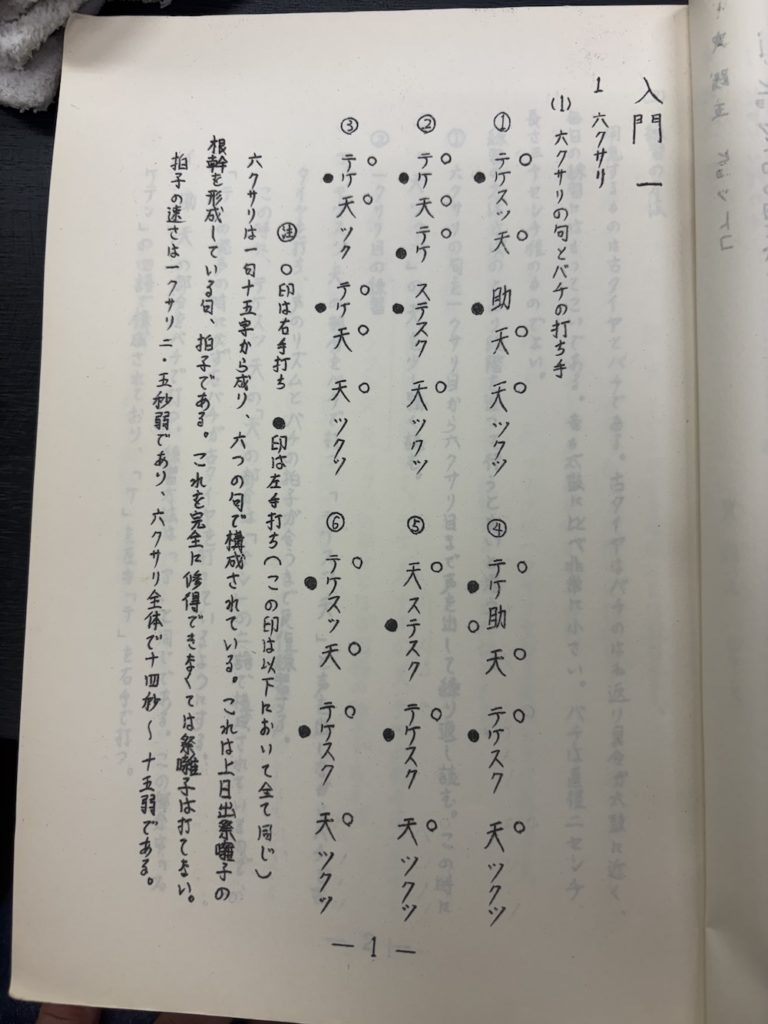 入門 一
1 六クサリ
(1) 六クサリの句とバチの打ち手
① テケスッ天 助天 天ツクツ
② テケ天テケ ステスク 天ツクツ
③ テケ天ツク テケ天 天ツクツ
④ テケ助天 テケスク 天ツクツ
⑤ 天ステスク テケスク 天ツクツ
⑥ テケスッ天 テケスク 天ツクツ
㊟ ○印は右手打ち ●印は左手打ち(この印は以下において全て同じ)
六クサリは一句十五字から成り、六つの句で構成されている。これは上日出祭囃子の
根幹を形成している句、拍子である。これを完全に修得できなくては祭囃子は打てない。
拍子の速さは一クサリ二・五秒弱であり、六クサリ全体で十四秒〜十五弱である。
— 1 —